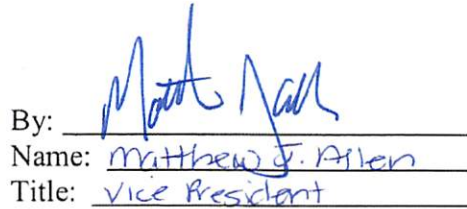 By:
Name: Matthew J. Allen
Title: Vice President